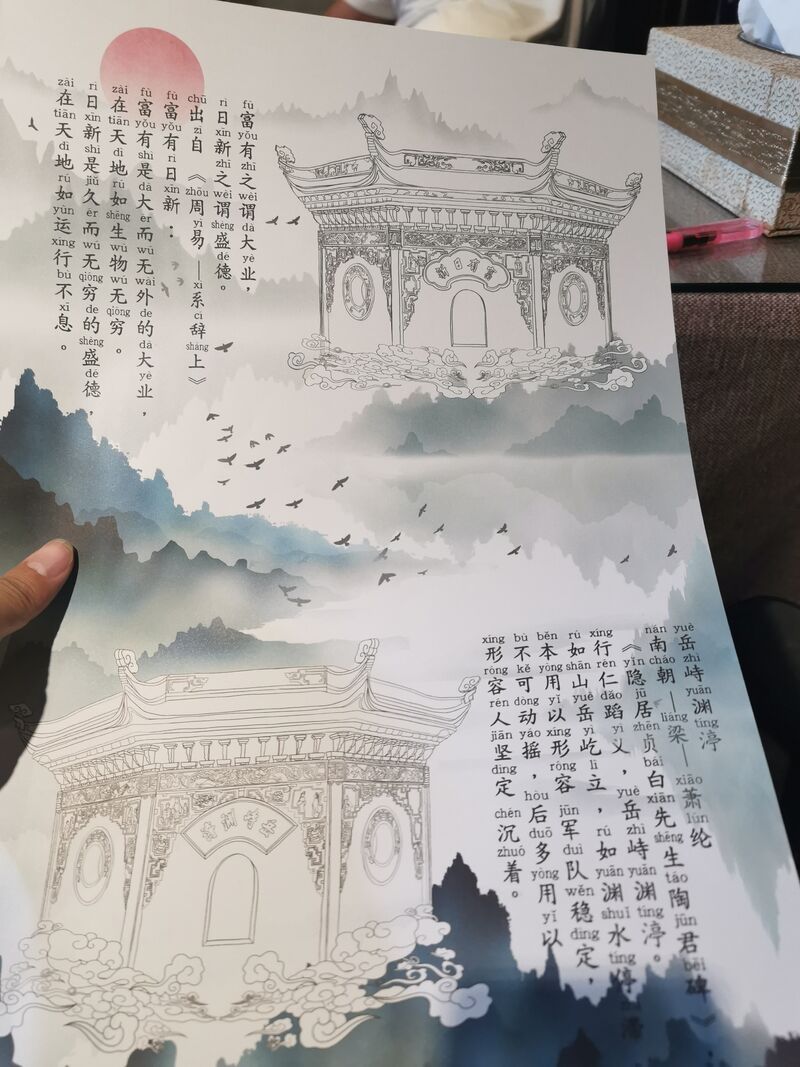 fù yǒu zhī wèi dà yè
富有之谓大业，
rì xīn zhī wèi shèng dé
日新之谓盛德。
chū zì zhōu yì xì cí shàng
出自《周易——系辞上》
fù yǒu rì xīn
富有日新：
fù yǒu shì dà ér wú wài de dà yè
富有是大而无外的大业，
zài tiān dì rú shēng wù wú qióng
在天地如生物无穷。
rì xīn shì jiǔ ér wú qióng de shèng dé
日新是久而无穷的盛德，
zài tiān dì rú yùn xíng bù xī
在天地如运行不息。
富有日新
yuè zhì yuān tíng
岳峙渊渟
nán cháo liáng xiāo lún
南朝——梁——萧纶
yǐn jū zhēn bái xiān shēng táo jūn bēi
《隐居贞白先生陶君碑》：
xíng rén dǎo yì yuè zhì yuān tíng
行仁蹈义，岳峙渊渟。
rú shān yuè yì lì rú yuān shuǐ tíng
如山岳屹立，如渊水停滞
běn yòng yǐ xíng róng jūn duì wěn dìng
本用以形容军队稳定，
bù kě dòng yáo hòu duō yòng yǐ
不可动摇，后多用以
xíng róng rén jiān dìng chén zhuó
形容人坚定沉着。
岳峙渊渟